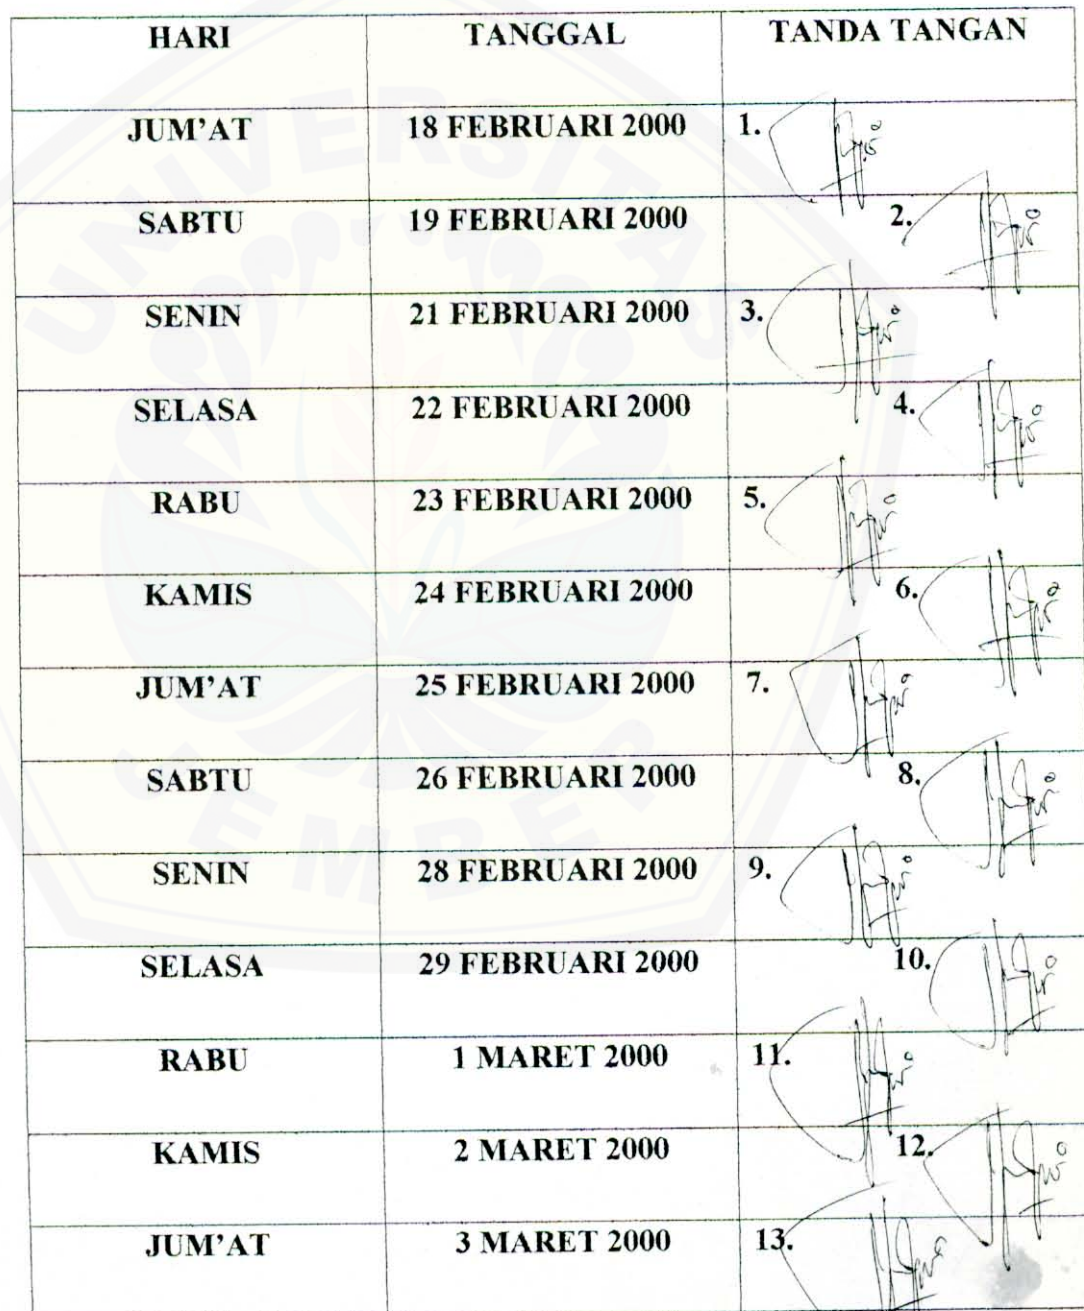 HARI TANGGAL TANDA TANGAN
JUM'AT 18 FEBRUARI 2000 1.
SABTU 19 FEBRUARI 2000 2.
SENIN 21 FEBRUARI 2000 3.
SELASA 22 FEBRUARI 2000 4.
RABU 23 FEBRUARI 2000 5.
KAMIS 24 FEBRUARI 2000 6.
JUM'AT 25 FEBRUARI 2000 7.
SABTU 26 FEBRUARI 2000 8.
SENIN 28 FEBRUARI 2000 9.
SELASA 29 FEBRUARI 2000 10.
RABU 1 MARET 2000 11.
KAMIS 2 MARET 2000 12.
JUM'AT 3 MARET 2000 13.
UNIVERSITAS
JEMBER